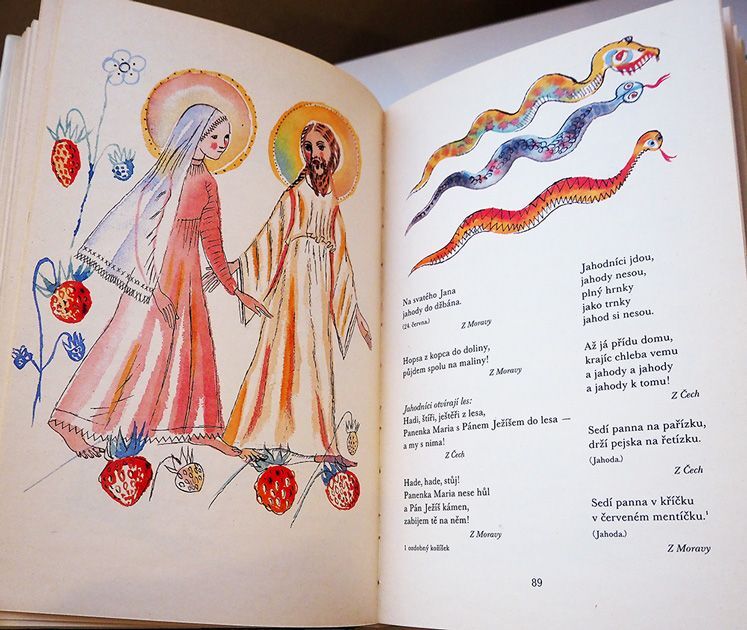 Na svatého Jana
jahody do džbána.
(24. června.)
Z Moravy
Hopsa z kopca do doliny,
půjdem spolu na maliny!
Z Moravy
Jahodníci otvírají les:
Hadi, štíři, ještěři z lesa,
Panenka Maria s Pánem Ježíšem do lesa —
a my s nima!
Z Čech
Hade, hade, stůj!
Panenka Maria nese hůl
a Pán Ježíš kámen,
zabijem tě na něm!
Z Moravy
1 ozdobný kožíšek
Jahodníci jdou,
jahody nesou,
plný hrnky
jako trnky
jahod si nesou.
Až já přídu domu,
krajíc chleba vemu
a jahody a jahody
a jahody k tomu!
Z Čech
Sedí panna na pařízku,
drží pejska na řetízku.
(Jahoda.)
Z Čech
Sedí panna v kříčku
v červeném mentíčku.¹
(Jahoda.)
Z Moravy
89